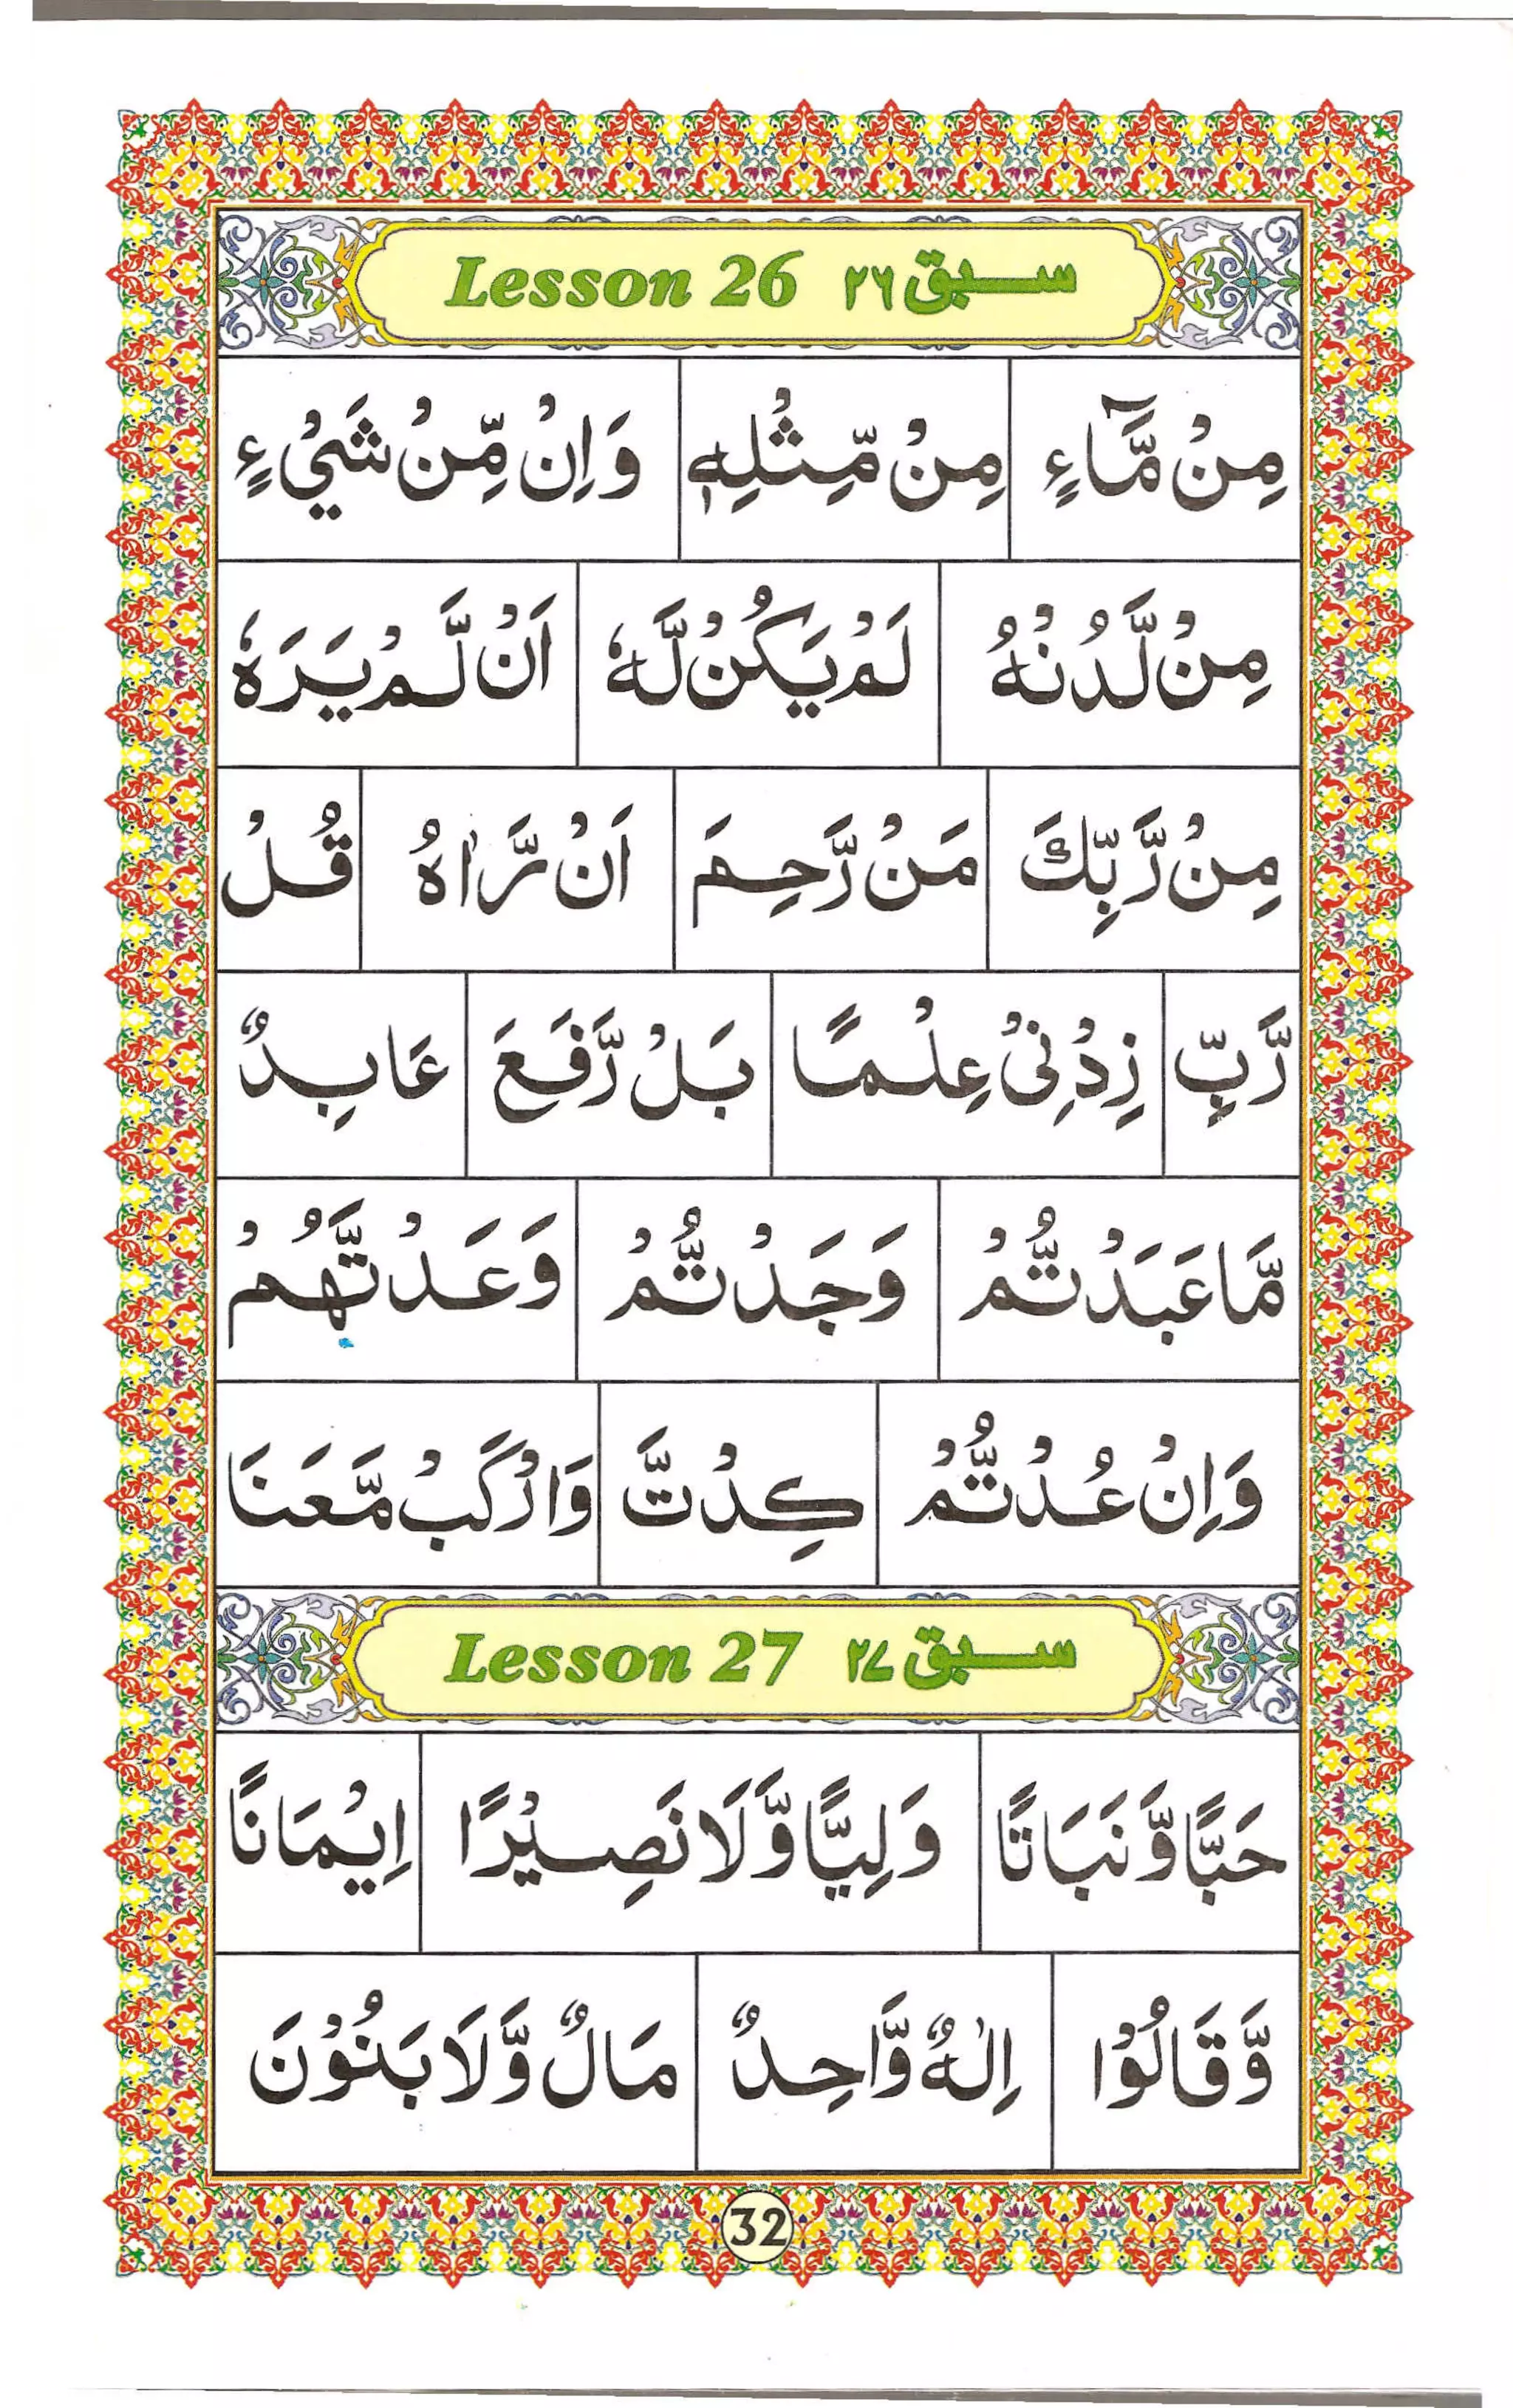 Lesson 26 سبق ۲۶
مِنْ مَّآءٍ مِنْ مِّثْلِهٖ وَاِنْ مِّنْ شَیْءٍ
مِنْ لَّدُنْهُ لَمْ یَكُنْ لَّهٗ اَنْ لَّمْ یَرَهٗ
مِنْ رَّبِّكَ مَنْ رَّحِمَ اَنْ رَّاٰهُ قُلْ
رَّبِّ زِدْنِیْ عِلْمًا بَلْ رَّفَعَ عَابِدٌ
مَّا عَبَدْتُّمْ وَجَدْتُّمْ وَعَدْتَّهُمْ
وَاِنْ عُدْتُّمْ كِدْتَّ وَارْكَبْ مَّعَنَا
Lesson 27 سبق ۲۷
حَبًّا وَّنَبَاتًا وَلِیًّا وَّلَا نَصِیْرًا اِیْمَانًا
وَّقَالُوْا اِلٰهٌ وَّاحِدٌ مَالٌ وَّلَا بَنُوْنَ
32